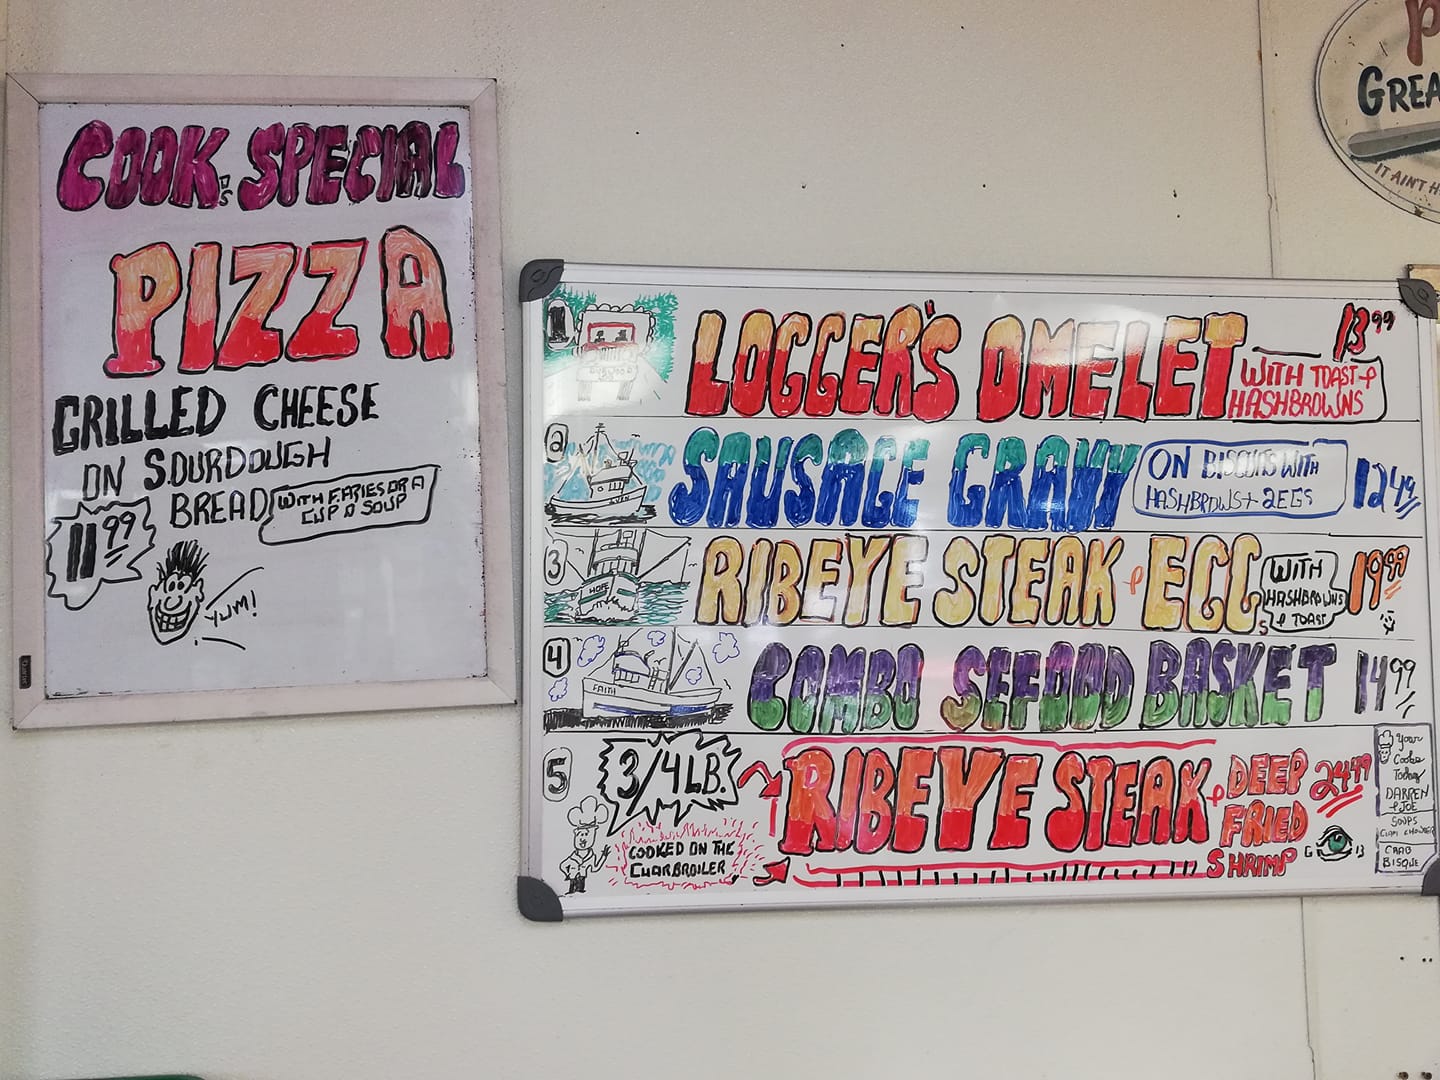 COOK'S SPECIAL
PIZZA
GRILLED CHEESE
ON SOURDOUGH
BREAD
WITH FARIES OR A
CUP O SOUP
11 99
YUM!
1
LOGGER'S OMELET
13 99
WITH TOAST &
HASHBROWNS
2
SAUSAGE GRAVY
ON BISCUITS WITH
HASHBROWS + 2 EGS
12 49
3
HOPE
RIBEYE STEAK & EGGS
WITH
HASHBROWNS
& TOAST
19 99
4
FAITH
COMBO SEFOOD BASKET
14 99
5
3/4 LB.
COOKED ON THE
CHARBROILER
RIBEYE STEAK &
DEEP
FRIED
SHRIMP
24 99
G 13
Your
Cooks
Today
DARREN
& JOE
SOUPS
CLAM CHOWDER
CRAB
BISQUE
GREA
IT AIN'T H
Quartet